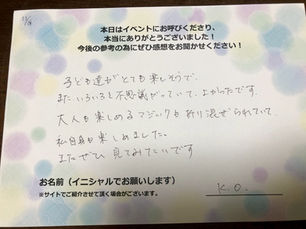 本日はイベントにお呼びくださり、
本当にありがとうございました！
今後の参考の為にぜひ感想をお聞かせください！
子ども達がとても楽しそうで、
またいろいろと不思議がっていて、よかったです。
大人も楽しめるマジックも折り混ぜられていて、
私自身も楽しめました。
またぜひ見てみたいです
お名前（イニシャルでお願いします）
※サイトでご紹介させて頂く場合がございます。
K.O.